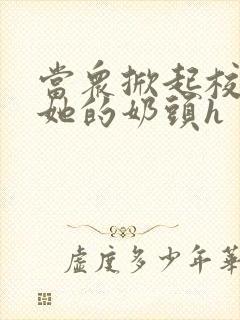 當眾掀起校
她的奶頭h
虛度多少年華